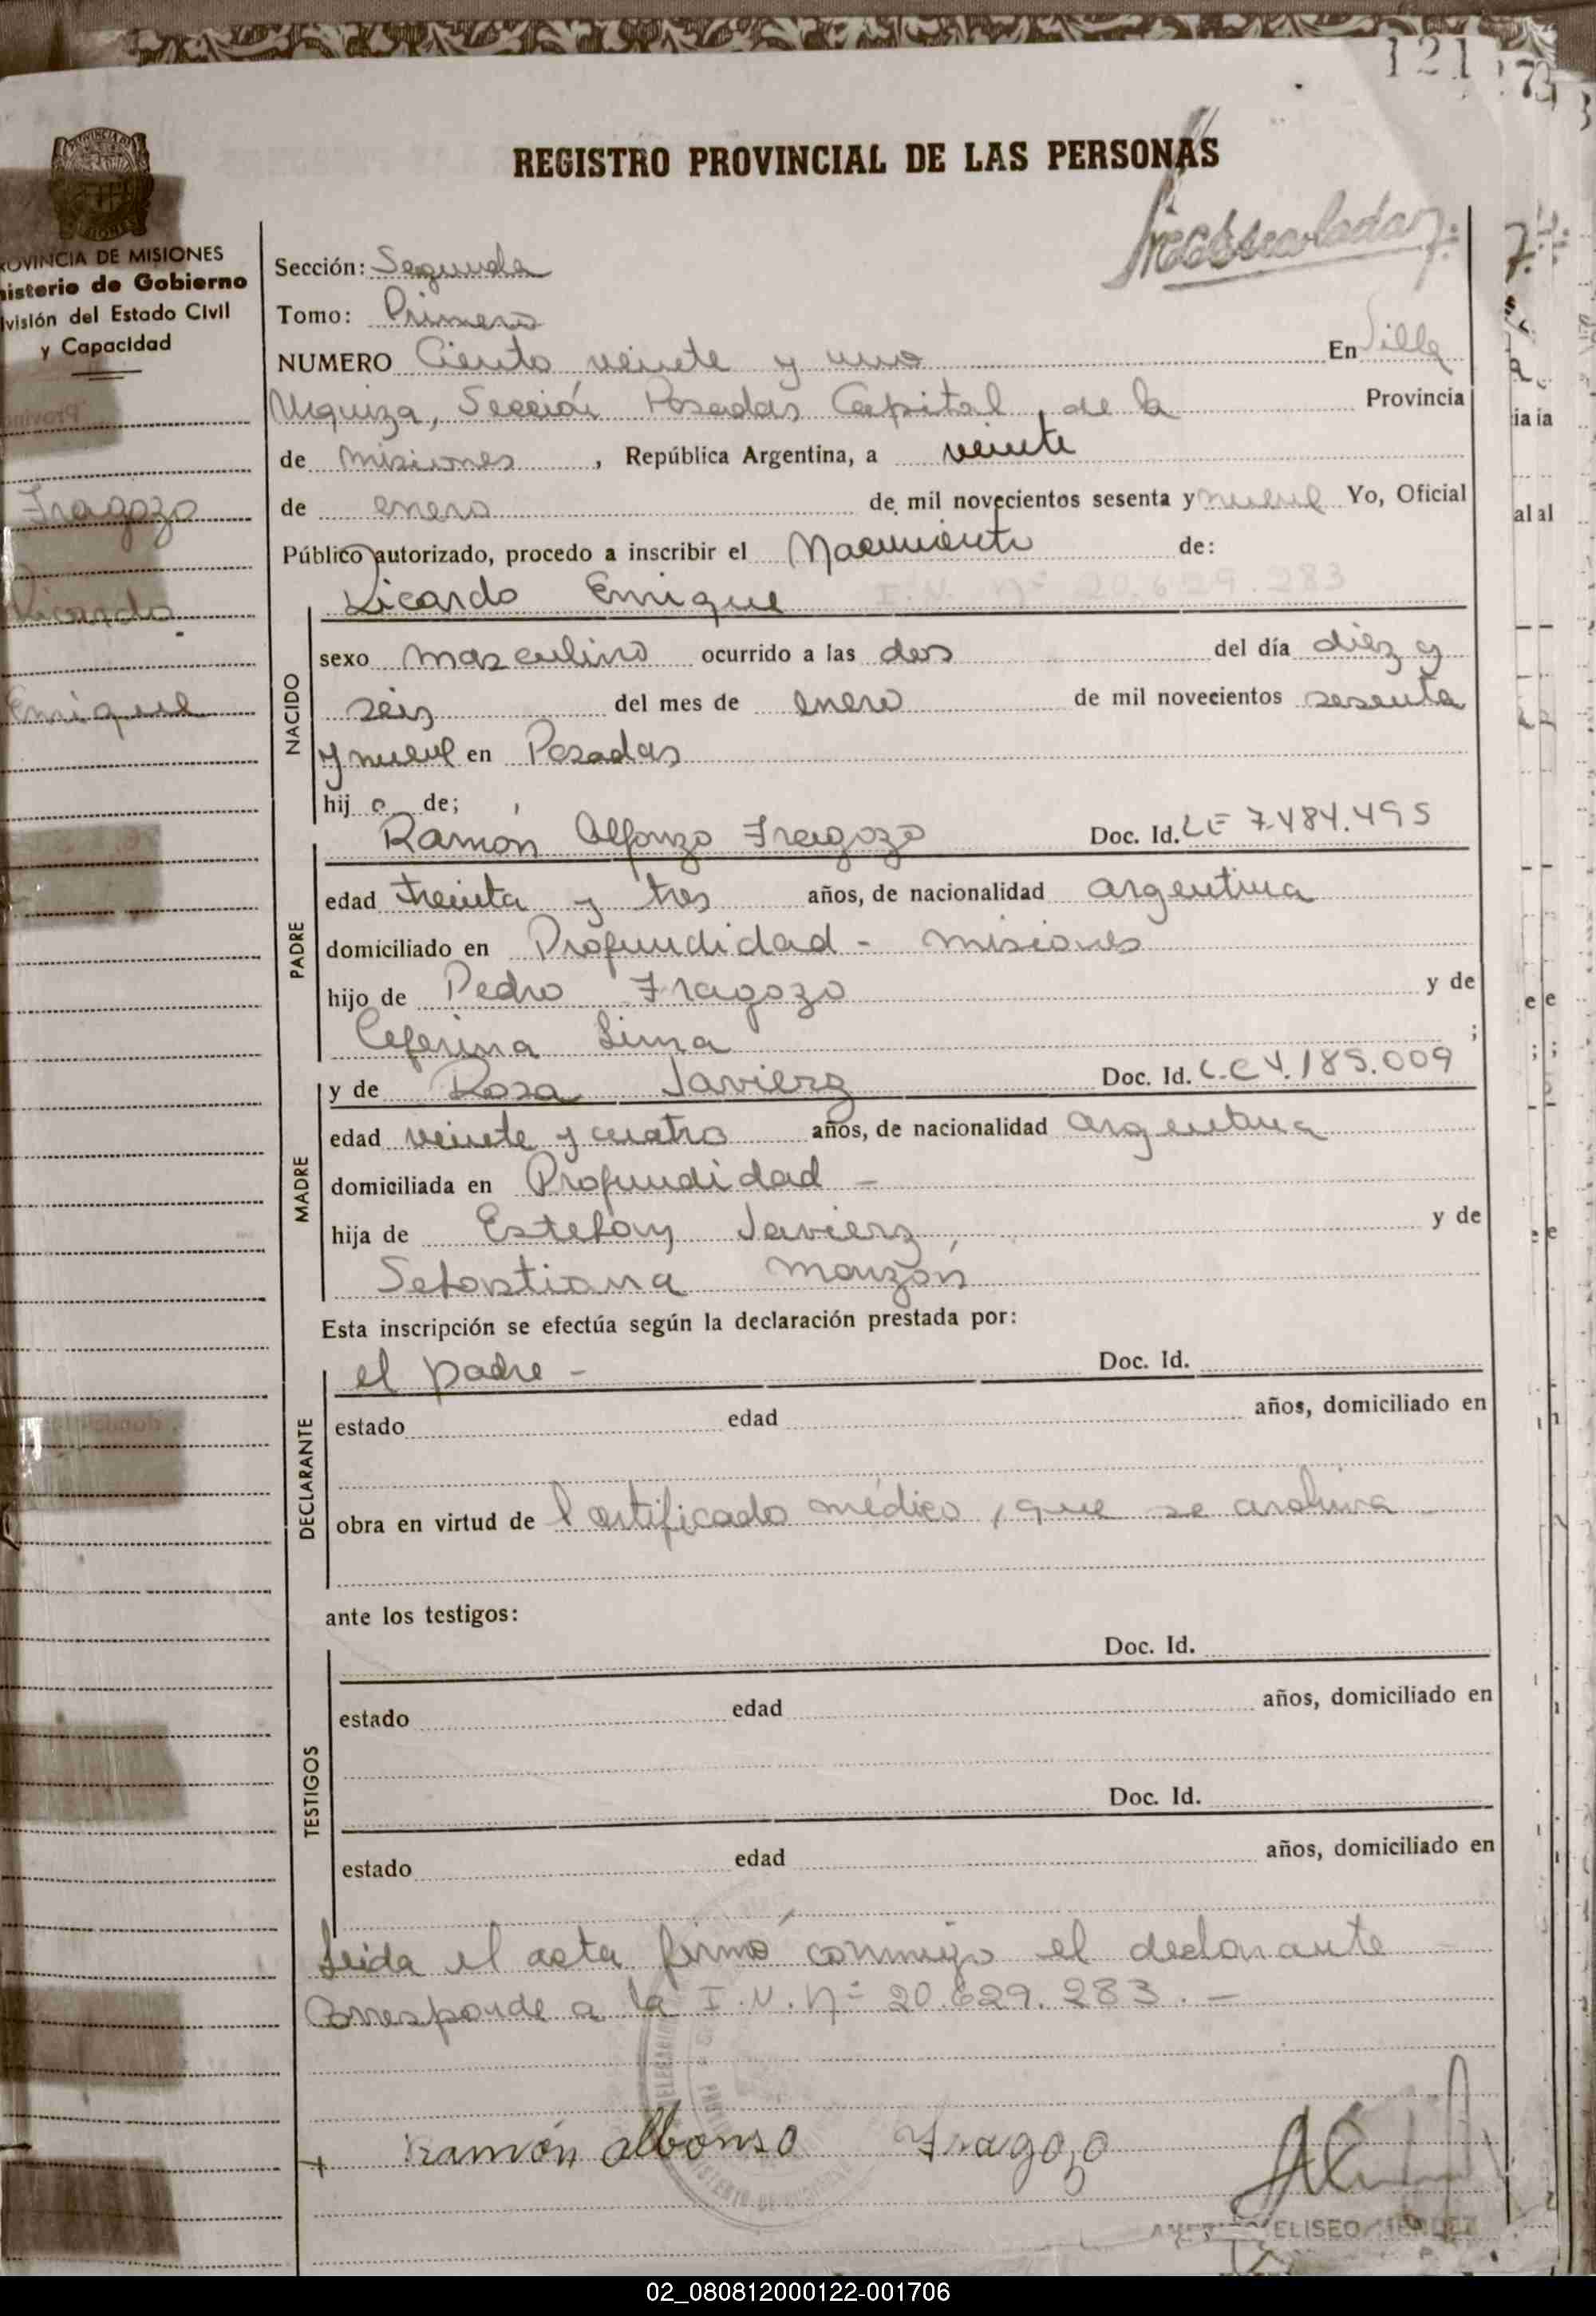 121
REGISTRO PROVINCIAL DE LAS PERSONAS
PROVINCIA DE MISIONES
Ministerio de Gobierno
División del Estado Civil
y Capacidad
Fragozo
Ricardo
Enrique
Sección: Segunda
Tomo: Primero
NUMERO Ciento veinte y uno En Villa
Urquiza, Sección Posadas Capital, de la Provincia
de misiones, República Argentina, a veinte
de enero de mil novecientos sesenta y nueve Yo, Oficial
Público autorizado, procedo a inscribir el Nacimiento de:
Ricardo Enrique I.N. Nº 20.629.283
NACIDO
sexo masculino ocurrido a las dos del día diez y
seis del mes de enero de mil novecientos sesenta
y nueve en Posadas
hij o de;
Ramón Alfonzo Fragozo Doc. Id. LE 7.484.495
PADRE
edad treinta y tres años, de nacionalidad argentina
domiciliado en Profundidad - misiones
hijo de Pedro Fragozo y de
Ceferina Lima ;
y de Rosa Javierz Doc. Id. L.C 4.185.009
MADRE
edad veinte y cuatro años, de nacionalidad argentina
domiciliada en Profundidad -
hija de Estefany Javierz, y de
Sebastiana Monzón
Esta inscripción se efectúa según la declaración prestada por:
el padre - Doc. Id.
DECLARANTE
estado edad años, domiciliado en
obra en virtud de Certificado médico, que se archiva
ante los testigos:
Doc. Id.
TESTIGOS
estado edad años, domiciliado en
Doc. Id.
estado edad años, domiciliado en
Leida el acta firmó conmigo el declarante
Corresponde a la I.N. Nº 20.629.283. -
Ramón Albonso Fragozo
ELISEO
02_080812000122-001706